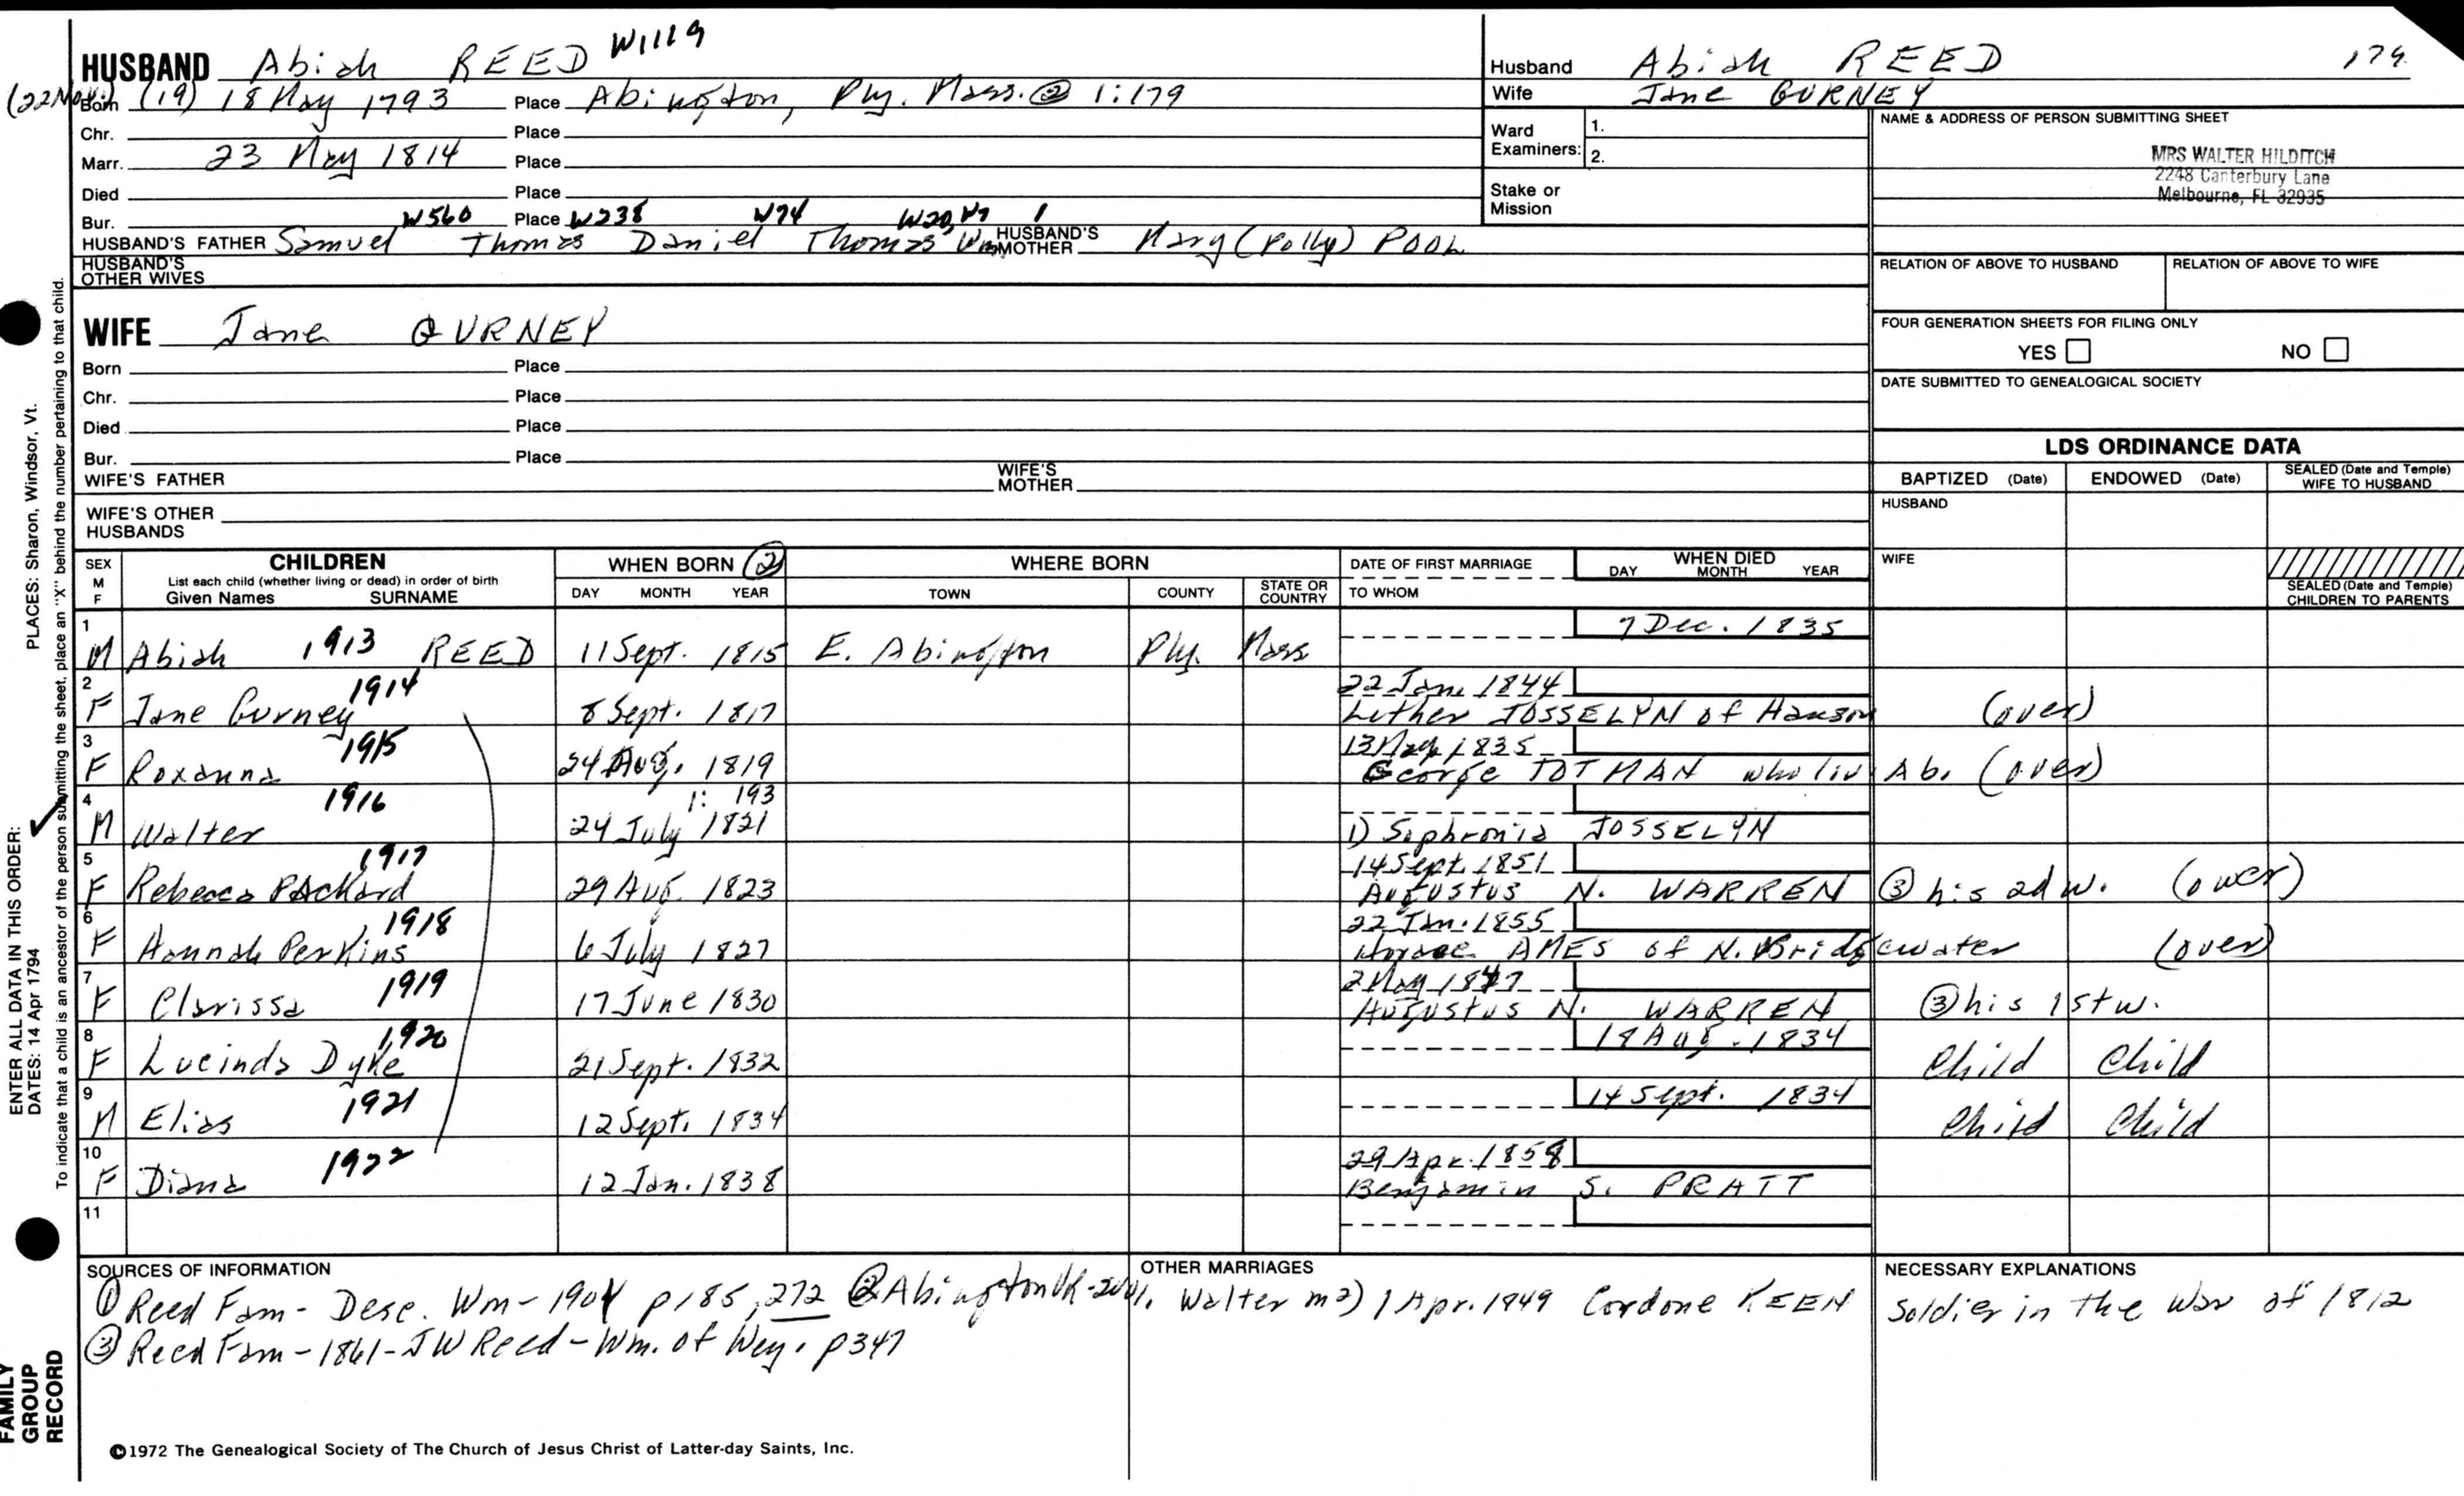 HUSBAND Abiah REED W1119
(22Nov.) Born (19) 18 May 1793 Place Abington, Ply. Mass. ② 1:179
Chr. Place
Marr. 23 May 1814 Place
Died Place
Bur. W560 Place W238 W74 W20, W7 1
HUSBAND'S FATHER Samuel Thomas Daniel Thomas Wm HUSBAND'S MOTHER Mary (Polly) POOL
HUSBAND'S OTHER WIVES
Husband Abiah REED 179
Wife Jane GURNEY
Ward Examiners: 1.
2.
Stake or Mission
NAME & ADDRESS OF PERSON SUBMITTING SHEET
MRS WALTER HILDITCH
2248 Canterbury Lane
Melbourne, FL 32935
RELATION OF ABOVE TO HUSBAND RELATION OF ABOVE TO WIFE
FOUR GENERATION SHEETS FOR FILING ONLY
YES NO
DATE SUBMITTED TO GENEALOGICAL SOCIETY
WIFE Jane GURNEY
Born Place
Chr. Place
Died Place
Bur. Place
WIFE'S FATHER WIFE'S MOTHER
WIFE'S OTHER HUSBANDS
LDS ORDINANCE DATA
BAPTIZED (Date) ENDOWED (Date) SEALED (Date and Temple) WIFE TO HUSBAND
HUSBAND
WIFE
SEALED (Date and Temple) CHILDREN TO PARENTS
SEX M F CHILDREN WHEN BORN ② WHERE BORN DATE OF FIRST MARRIAGE WHEN DIED
List each child (whether living or dead) in order of birth
Given Names SURNAME DAY MONTH YEAR TOWN COUNTY STATE OR COUNTRY TO WHOM DAY MONTH YEAR
1 7 Dec. 1835
M Abiah 1913 REED 11 Sept. 1815 E. Abington Ply. Mass
2 1914 22 Jan. 1844
F Jane Gurney 8 Sept. 1817 Luther JOSSELYN of Hanson (over)
3 1915 13 May 1835
F Roxanna 24 Aug. 1819 George TOTMAN who liv Ab. (over)
4 1916 1: 193
M Walter 24 July 1821 1) Sophronia JOSSELYN
5 1917 14 Sept. 1851
F Rebecca Packard 29 Aug. 1823 Augustus N. WARREN ③ his 2d w. (over)
6 1918 22 Jan. 1855
F Hannah Perkins 6 July 1827 Horace AMES of N. Bridgewater (over)
7 1919 2 May 1847
F Clarissa 17 June 1830 Augustus N. WARREN ③ his 1st w.
8 1920 18 Aug. 1834
F Lucinda Dyke 21 Sept. 1832 Child Child
9 1921 14 Sept. 1834
M Elias 12 Sept. 1834 Child Child
10 1922 29 Apr. 1858
F Diana 12 Jan. 1838 Benjamin S. PRATT
11
SOURCES OF INFORMATION OTHER MARRIAGES NECESSARY EXPLANATIONS
① Reed Fam - Desc. Wm - 1901 p185, 272 ② Abington VR - Walter m 2) 1 Apr. 1849 Cordone KEEN Soldier in the War of 1812
③ Reed Fam - 1861 - JW Reed - Wm. of Wey. p347
©1972 The Genealogical Society of The Church of Jesus Christ of Latter-day Saints, Inc.
ENTER ALL DATA IN THIS ORDER: PLACES: Sharon, Windsor, Vt.
DATES: 14 Apr 1794
To indicate that a child is an ancestor of the person submitting the sheet, place an "X" behind the number pertaining to that child.
FAMILY
GROUP
RECORD